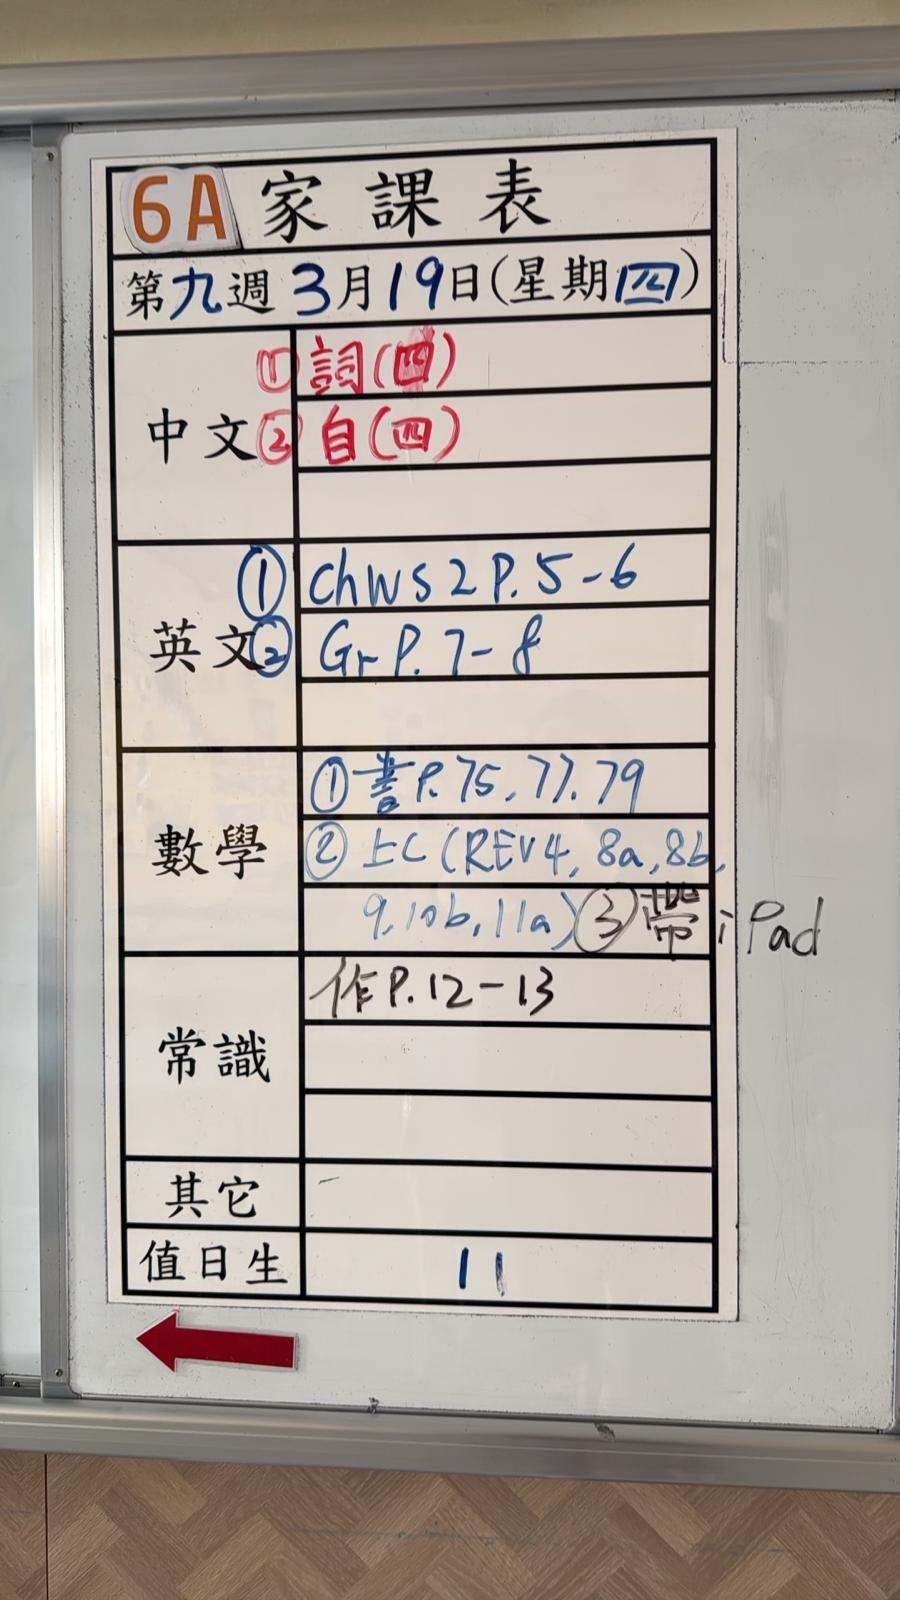 6A 家課表
第九週 3月19日(星期四)
中文
① 詞(四)
② 自(四)
英文
① Chws 2 P. 5-6
② Gr P. 7-8
數學
① 書 P. 75, 77, 79
② 上C (REV 4, 8a, 8b,
9, 10b, 11a) ③ 帶 iPad
常識
作 P. 12-13
其它
值日生
11